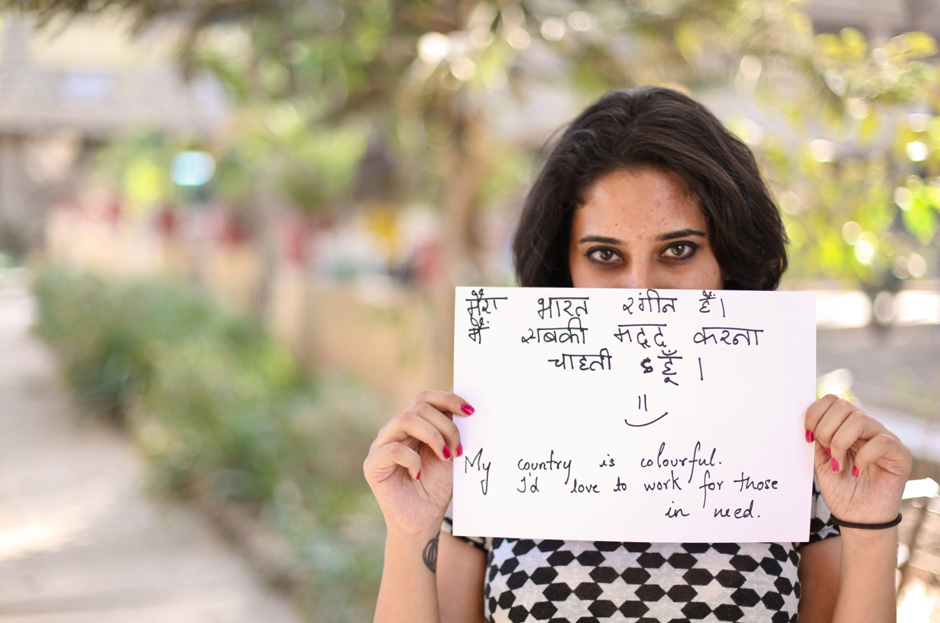 मेंरा भारत रंगीन हैं।
मैं सबकी मदद करना
चाहती हूँ।
My country is colourful.
I'd love to work for those
in need.